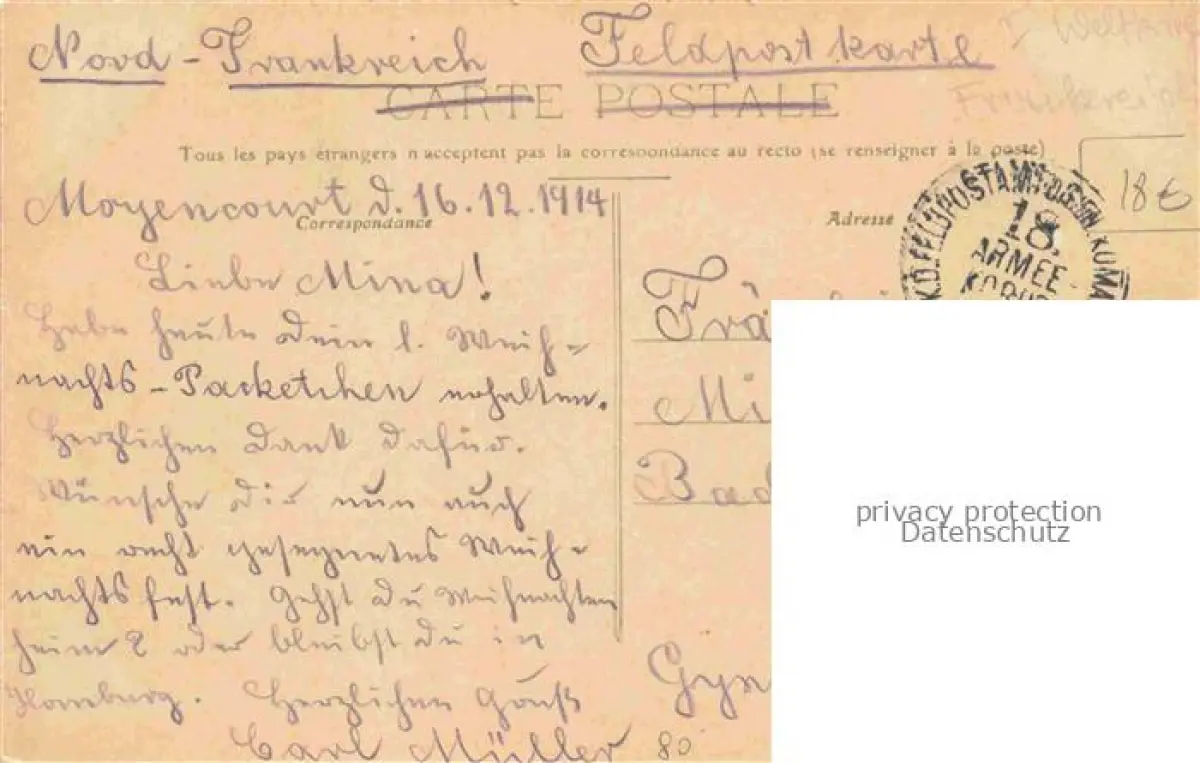 Nord - Frankreich Feldpostkarte
I Weltkrie
Frankreich
CARTE POSTALE
Tous les pays étrangers n'acceptent pas la correspondance au recto (se renseigner à la poste)
Moyencourt d. 16.12.1914
Correspondance
Liebe Mina!
Habe heute dein l. Weih-
nachts-Packetchen erhalten.
Herzlichen Dank dafür.
Wünsche dir nun auch
ein recht gesegnetes Weih-
nachtsfest. Gehst du Weihnachten
heim? oder bleibst du in
Homburg. Herzlichen Gruß
Carl Müller
80
Adresse
18 €
K.D. FELDPOSTAMT
18.
ARMEE
KORPS
Frä
Mi
Bad
Gyn
privacy protection
Datenschutz